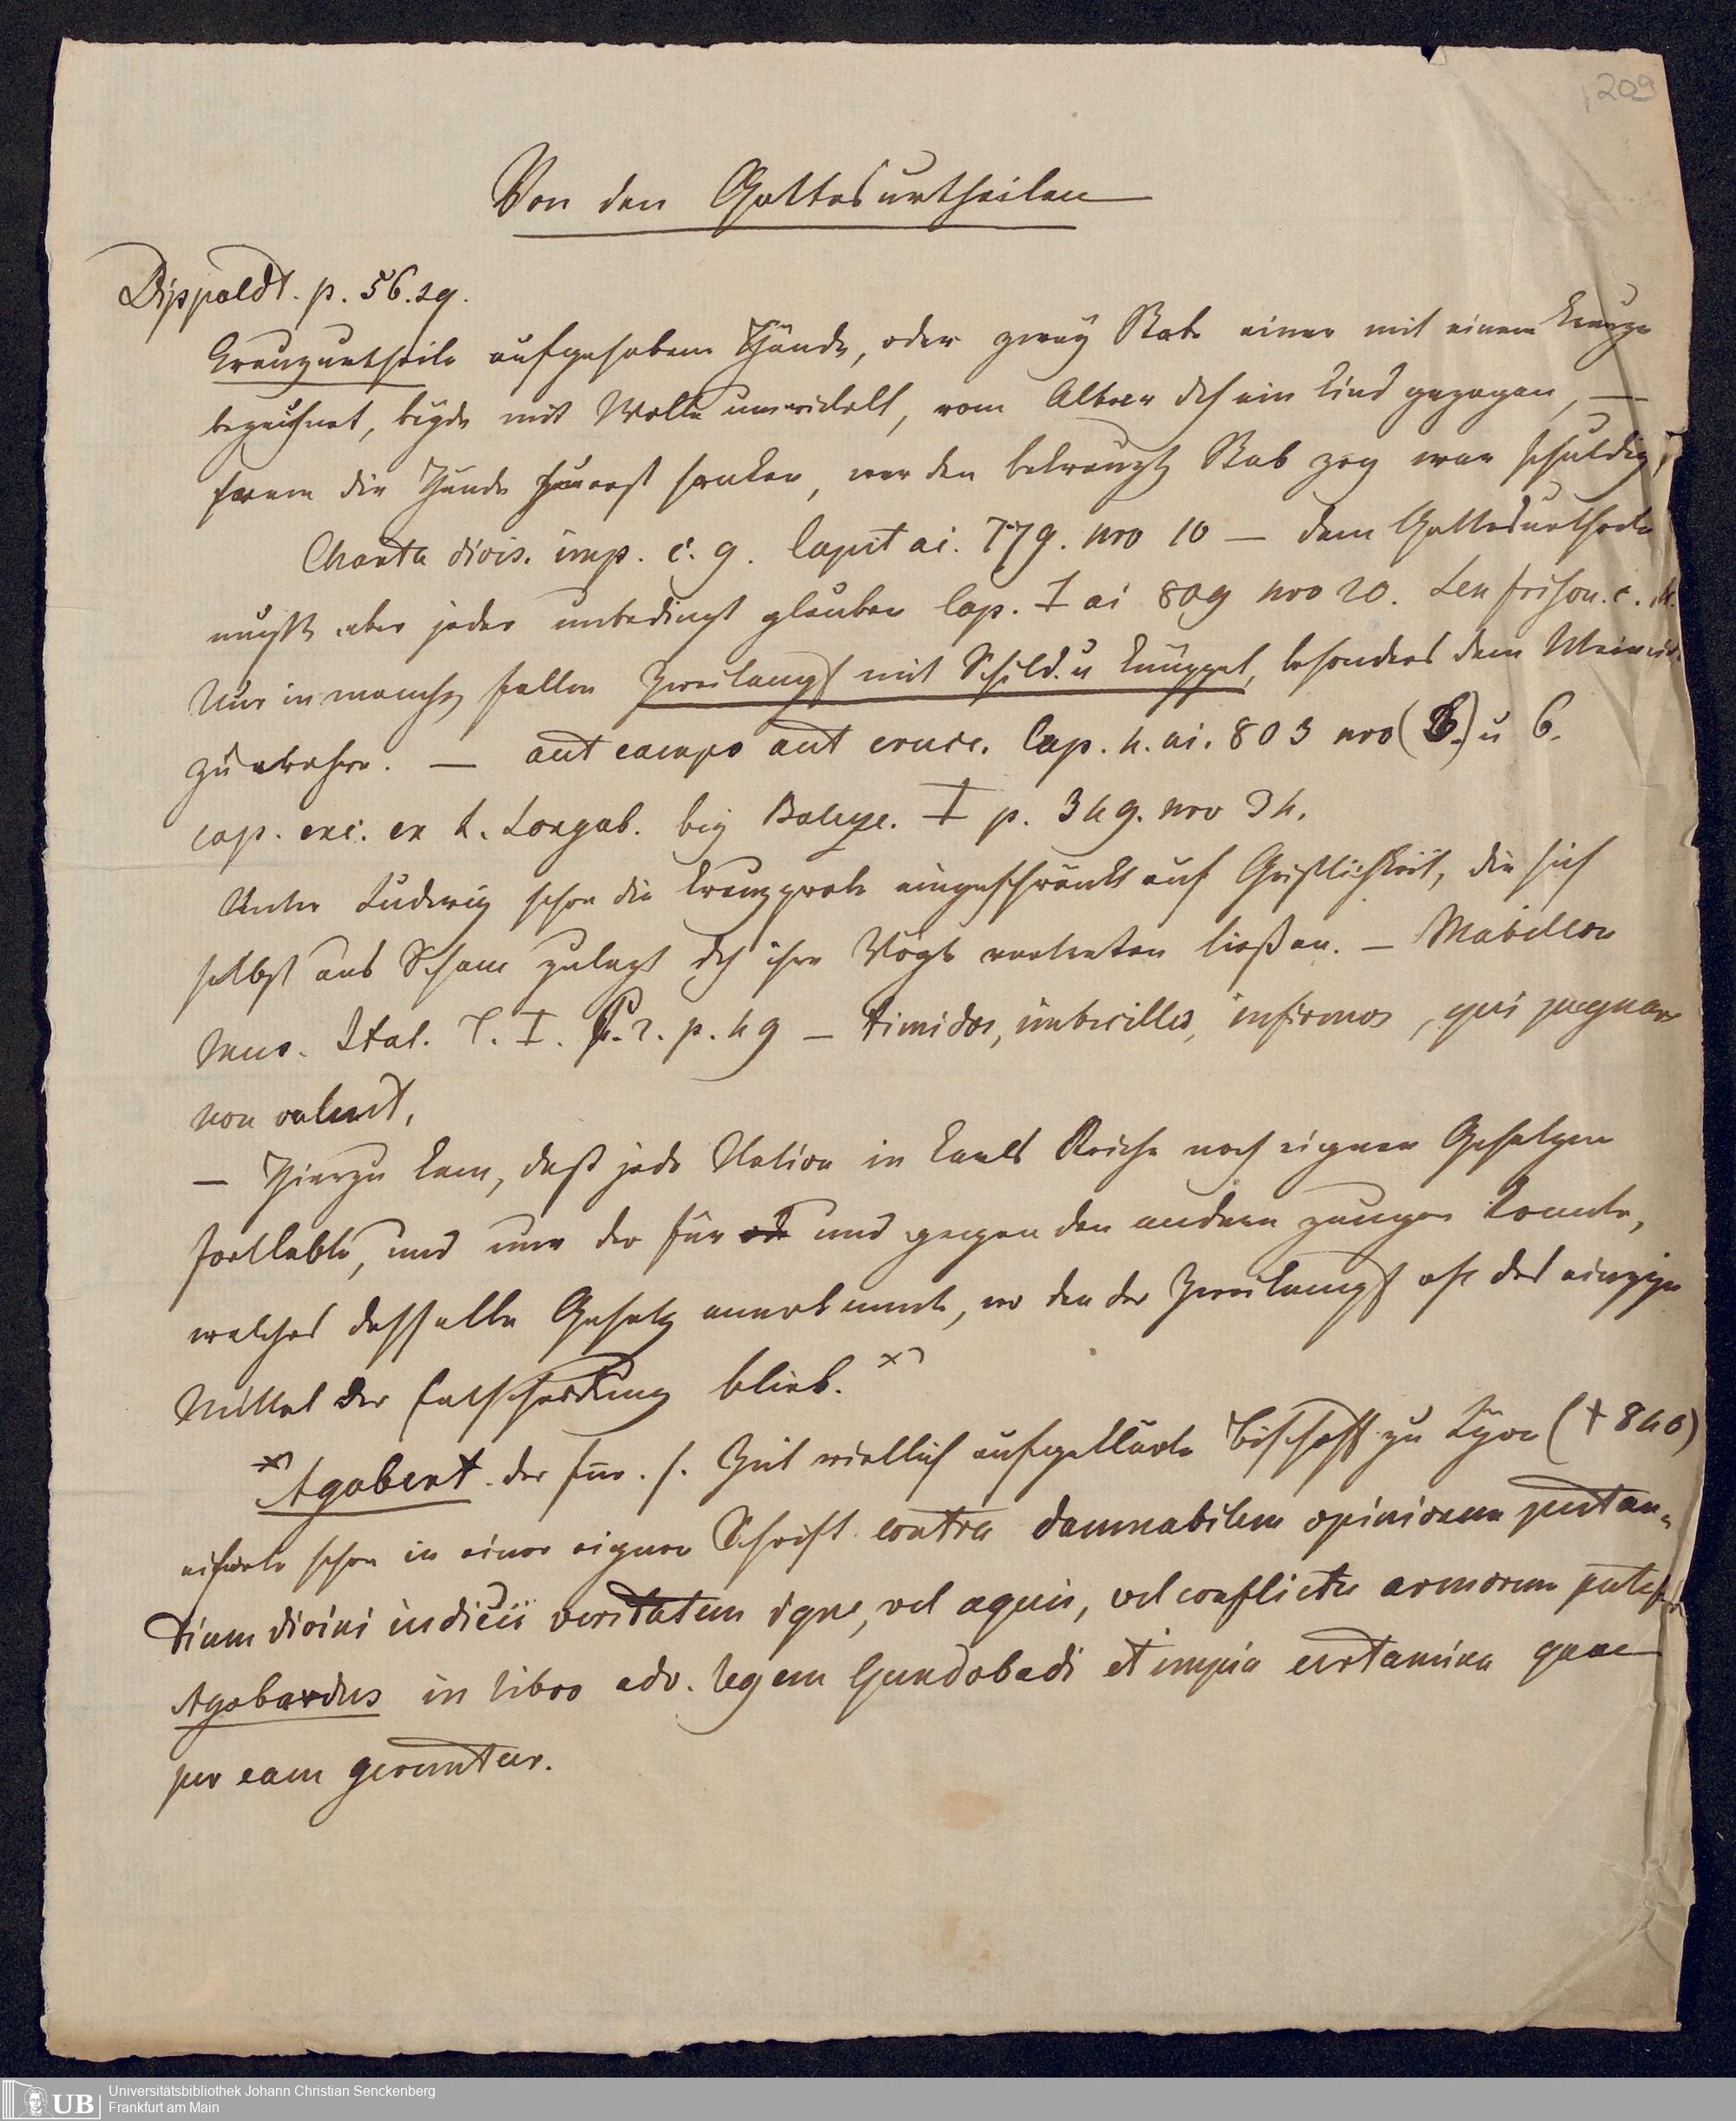 209
Von den Gottesurtheilen
Dippoldt. p. 56. sq.
Kreuzurtheile aufgehobene Hände, oder zwey Stabe einer mit einem Kreuze
bezeichnet, beyde mit Wolle umwickelt, vom Altare dch ein Kind gezogen, —
wem die Hände zuerst sanken, wer den bekreuzt Stab zog war schuldig,
Charta divis. imp. c. 9. Capit ai. 779. nro 10 — dem Gottesurtheile
mußte aber jeder unbedingt glauben Cap. I ai 809 nro 20. Lex frison. c.
Nur in manch fällen Zweikampf mit Schild u Knüppel, besonders dem Meineid
zu wehren. — aut campo aut cruce. Cap. 4. ai. 803 nro (3.) u 6.
cap. exc. ex L. Longob. bey Baluze. I p. 349. nro 34.
Unter Ludwig schon die Kreuzprobe eingeschränkt auf Geistlichkeit, die sich
selbst aus Scham zuletzt dch ihre Vögte vertreten ließen. — Mabillon
Mus. Ital. T. I. P. 2. p. 49 — timidos, imbecilles, infirmos, qui pugnare
non valent.
— Hierzu kam, daß jede Nation in Karls Reiche nach eignen Gesetzen
fortlebte, und nur der für und gegen den andern zeugen konnte,
welcher dasselbe Gesetz anerkannte, wo den der Zweikampf oft das einzige
Mittel der Entscheidung blieb. x)
x) Agobert der für s. Zeit wirklich aufgeklärte Bischoff zu Lyon († 840)
eiferte schon in einer eignen Schrift contra damnabilem opinionem putan-
tium divini iudicii veritatem igne, vel aquis, vel conflictu armorum patefieri
Agobardus in libro adv. legem Gundobadi et impia certamina quae
per eam geruntur.
UB Universitätsbibliothek Johann Christian Senckenberg
Frankfurt am Main